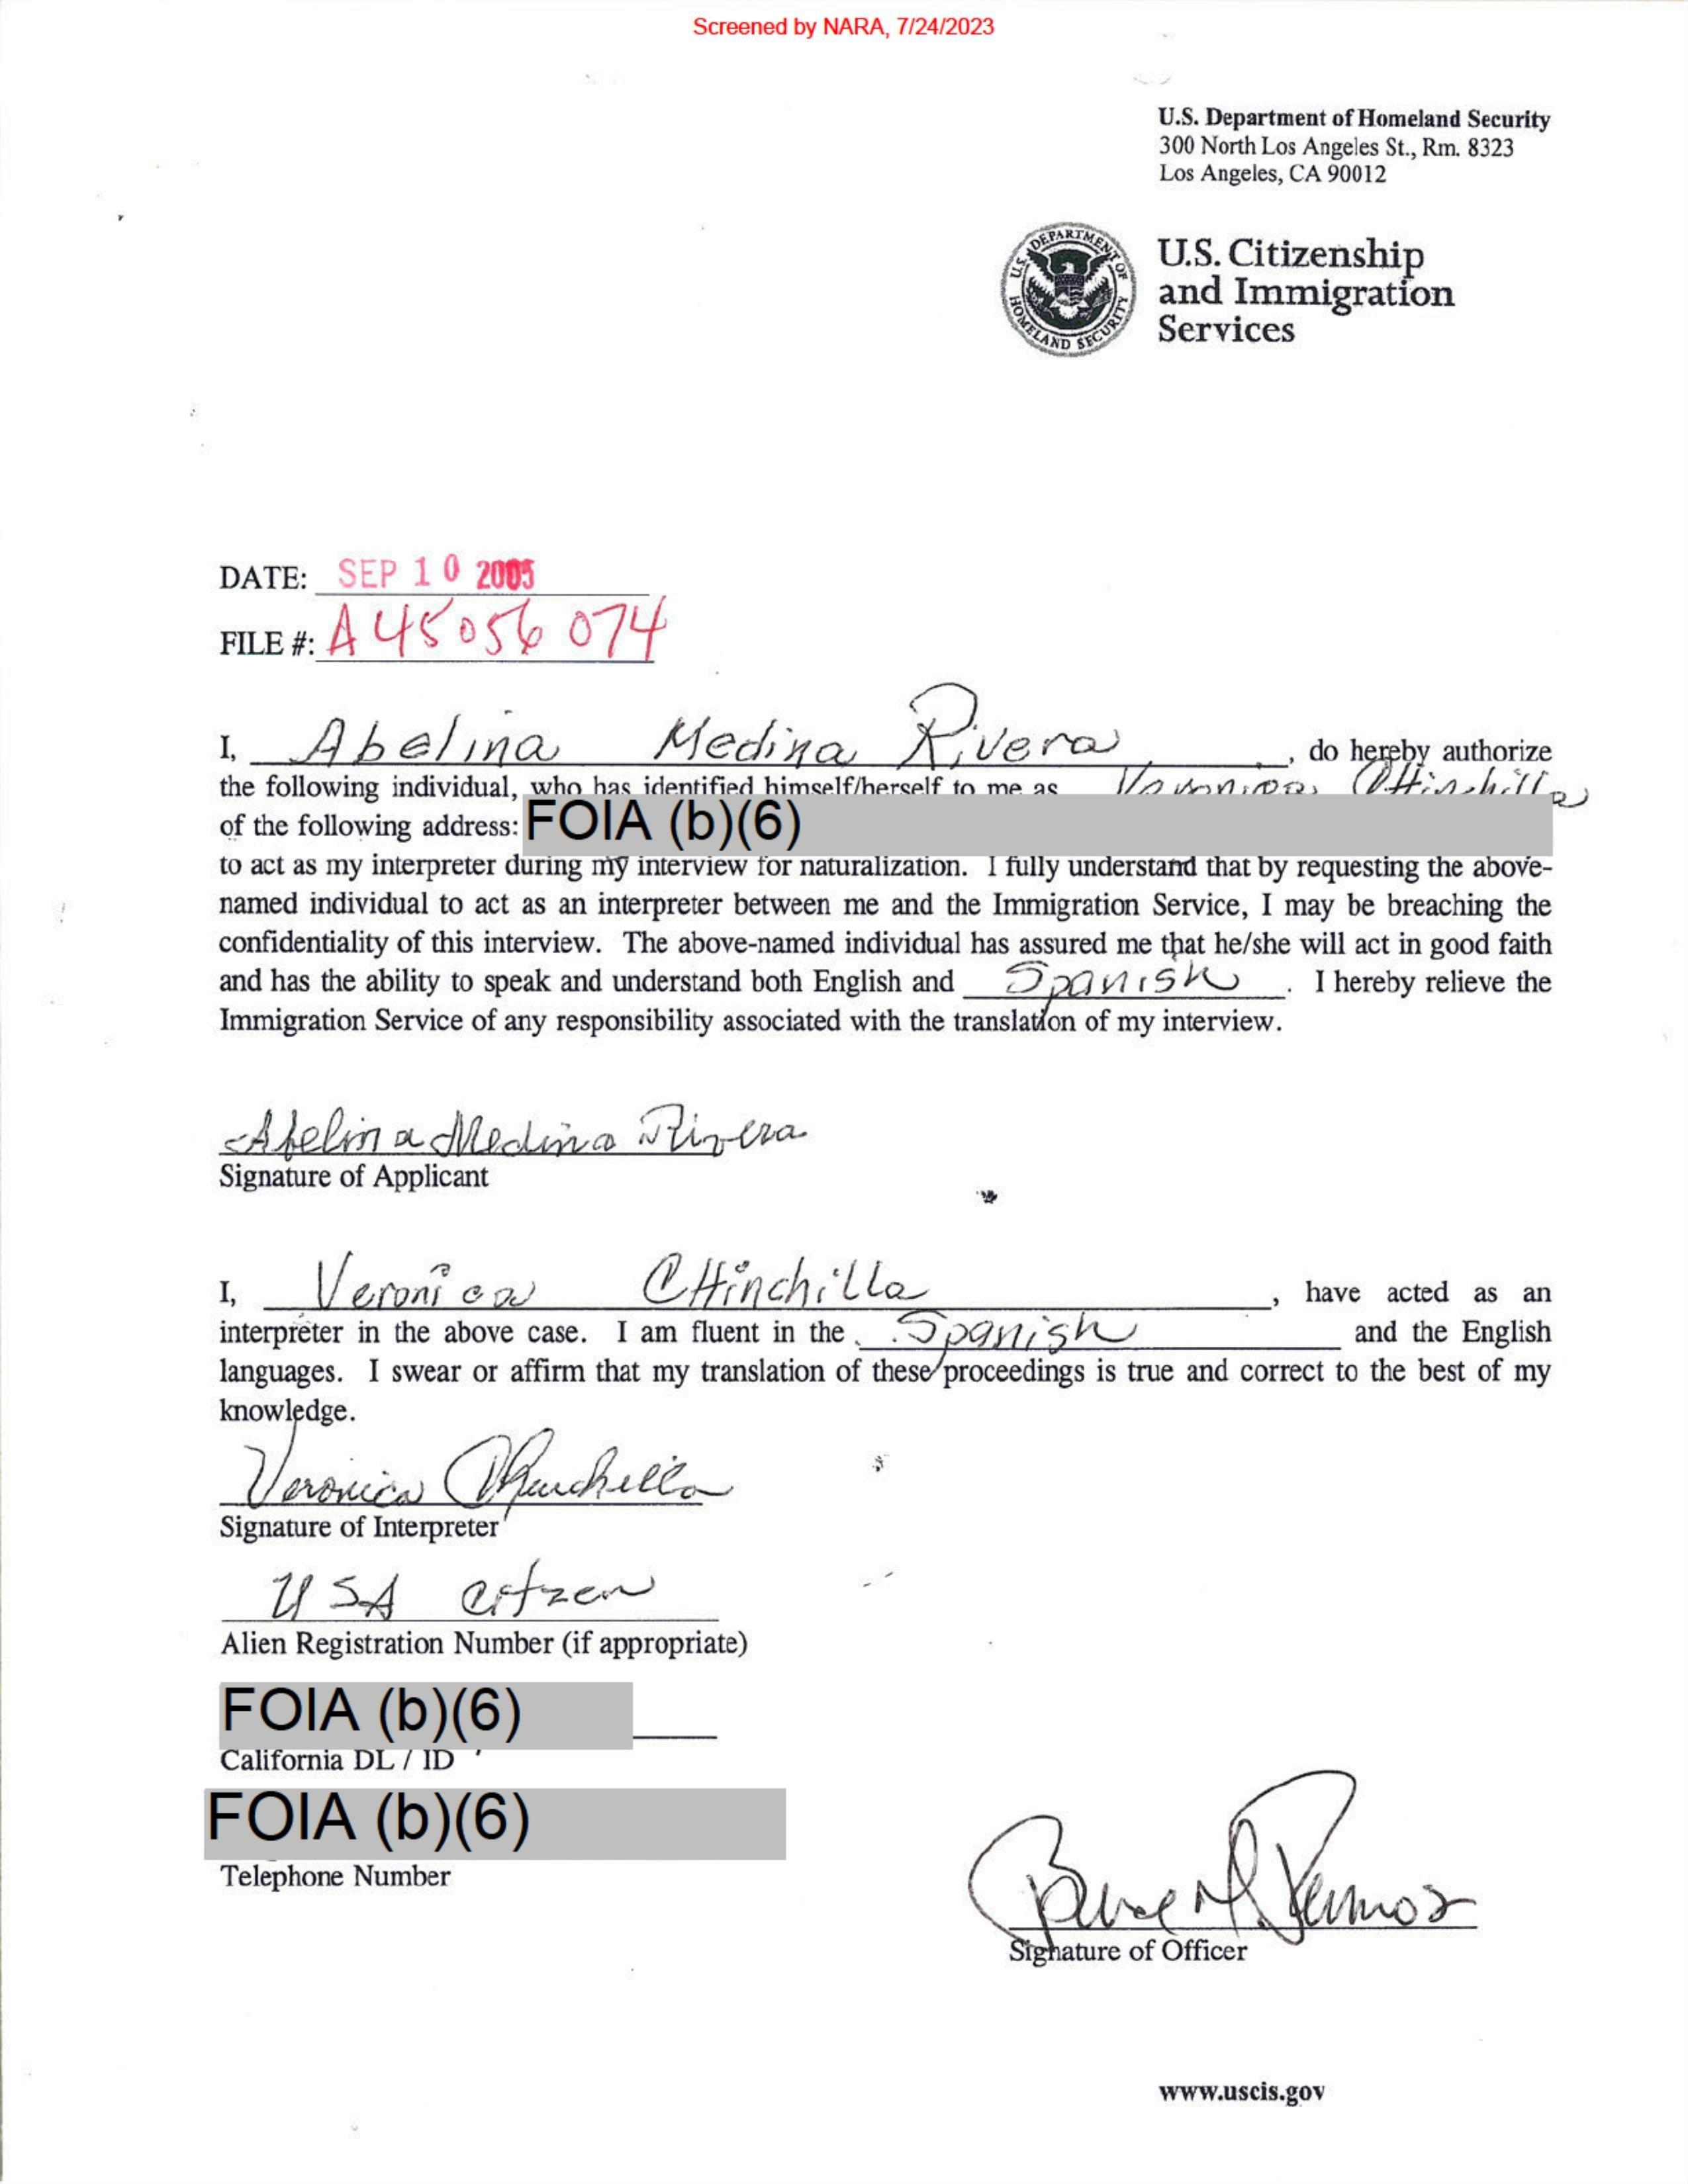 Screened by NARA, 7/24/2023
U.S. Department of Homeland Security
300 North Los Angeles St., Rm. 8323
Los Angeles, CA 90012
U.S. DEPARTMENT OF HOMELAND SECURITY
U.S. Citizenship
and Immigration
Services
DATE: SEP 10 2005
FILE #: A45056 074
I, Abelina Medina Rivera, do hereby authorize
the following individual, who has identified himself/herself to me as Veronica CHinchilla
of the following address: FOIA (b)(6)
to act as my interpreter during my interview for naturalization. I fully understand that by requesting the above-
named individual to act as an interpreter between me and the Immigration Service, I may be breaching the
confidentiality of this interview. The above-named individual has assured me that he/she will act in good faith
and has the ability to speak and understand both English and Spanish. I hereby relieve the
Immigration Service of any responsibility associated with the translation of my interview.
Abelina Medina Rivera
Signature of Applicant
I, Veronica CHinchilla, have acted as an
interpreter in the above case. I am fluent in the Spanish and the English
languages. I swear or affirm that my translation of these proceedings is true and correct to the best of my
knowledge.
Veronica CHinchilla
Signature of Interpreter
USA
Alien Registration Number (if appropriate)
FOIA (b)(6)
California DL / ID
FOIA (b)(6)
Telephone Number
Signature of Officer
www.uscis.gov